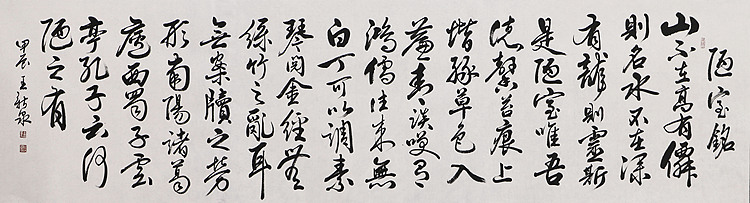 陋室銘
山不在高有僊
則名水不在深
有龍則靈斯
是陋室唯吾
德馨苔痕上
堦綠草色入
簾青談笑有
鴻儒往來無
白丁可以調素
琴閱金經無
絲竹之亂耳
無案牘之勞
形南陽諸葛
廬西蜀子雲
亭孔子云何
陋之有
甲辰王泉